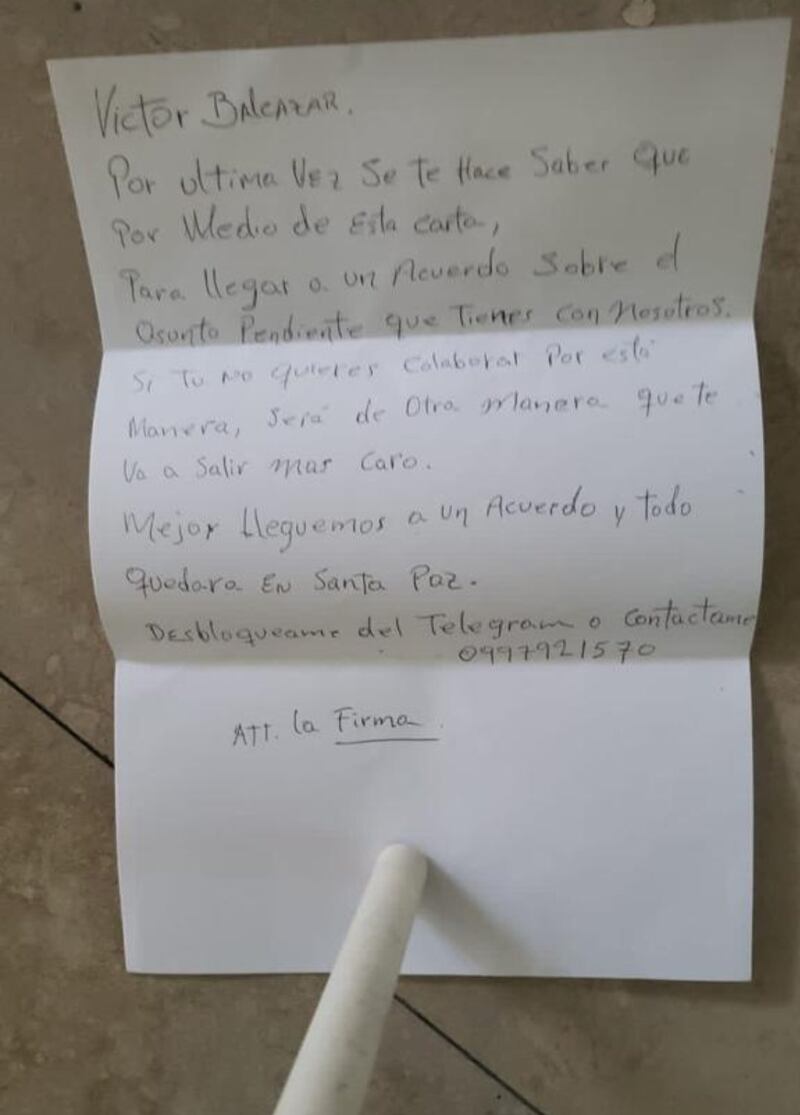 Victor BALCAZAR.
Por ultima Vez Se te Hace Saber Que
Por Medio de Esta carta,
Para llegar a un Acuerdo Sobre el
Asunto Pendiente que Tienes con Nosotros.
Si Tu no quieres Colaborar Por esta
Manera, será de Otra Manera que te
Va a Salir mas Caro.
Mejor lleguemos a un Acuerdo y todo
quedara EN Santa Paz.
DEsbloqueame del Telegram o Contactame
0997921570
ATT. la Firma.